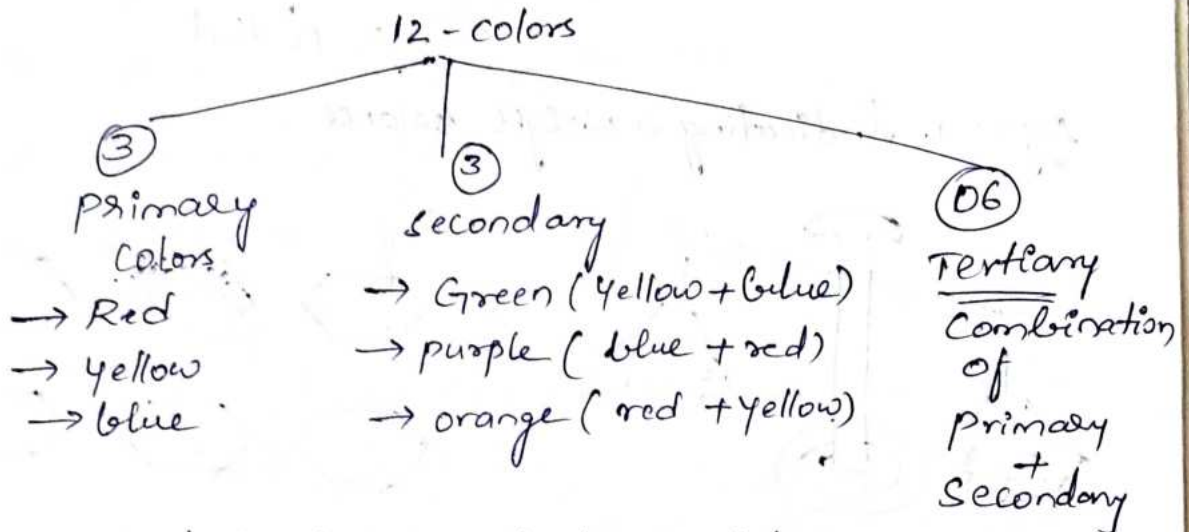 12-colors
3
Primary
Colors
→ Red
→ yellow
→ blue
3
secondary
→ Green (yellow+blue)
→ purple (blue + red)
→ orange (red +yellow)
06
Tertiary
Combination
of
Primary
+
Secondary